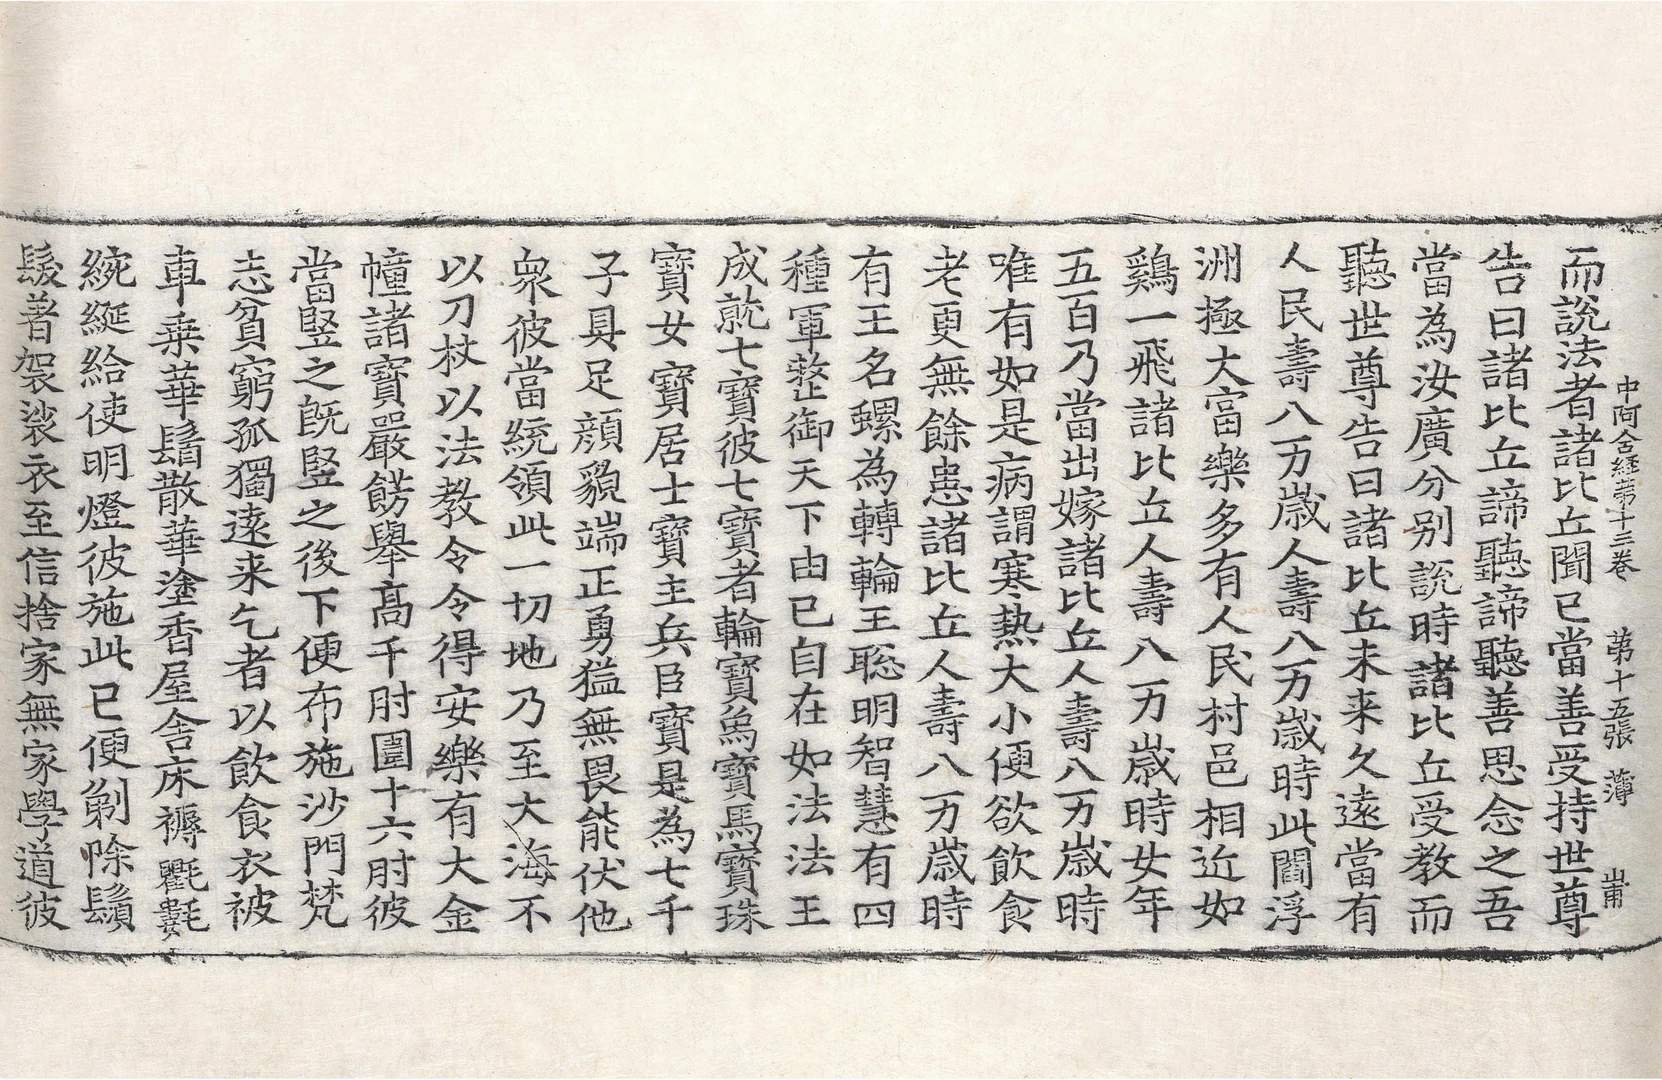 中阿含経苐十三卷　苐十五張　薄　甫
而說法者諸比丘聞已當善受持世尊
告曰諸比丘諦聽諦聽善思念之吾
當為汝廣分别說時諸比丘受教而
聽世尊告曰諸比丘未来久遠當有
人民壽八万歲人壽八万歲時此閻浮
洲極大富樂多有人民村邑相近如
鷄一飛諸比丘人壽八万歲時女年
五百乃當出嫁諸比丘人壽八万歲時
唯有如是病謂寒熱大小便欲飲食
老更無餘患諸比丘人壽八万歲時
有王名螺為轉輪王聡明智慧有四
種軍整御天下由已自在如法法王
成就七寶彼七寶者輪寶烏寶馬寶珠
寶女寶居士寶主兵臣寶是為七千
子具足顔貌端正勇猛無畏能伏他
衆彼當統領此一切地乃至大海不
以刀杖以法教令令得安樂有大金
幢諸寶嚴餝舉髙千肘圍十六肘彼
當竪之既竪之後下便布施沙門梵
志貧窮孤獨遠来乞者以飲食衣被
車乗華鬘散華塗香屋舎床褥氍㲣
綩綖給使明燈彼施此已便剃除鬚
髮著袈裟衣至信捨家無家學道彼